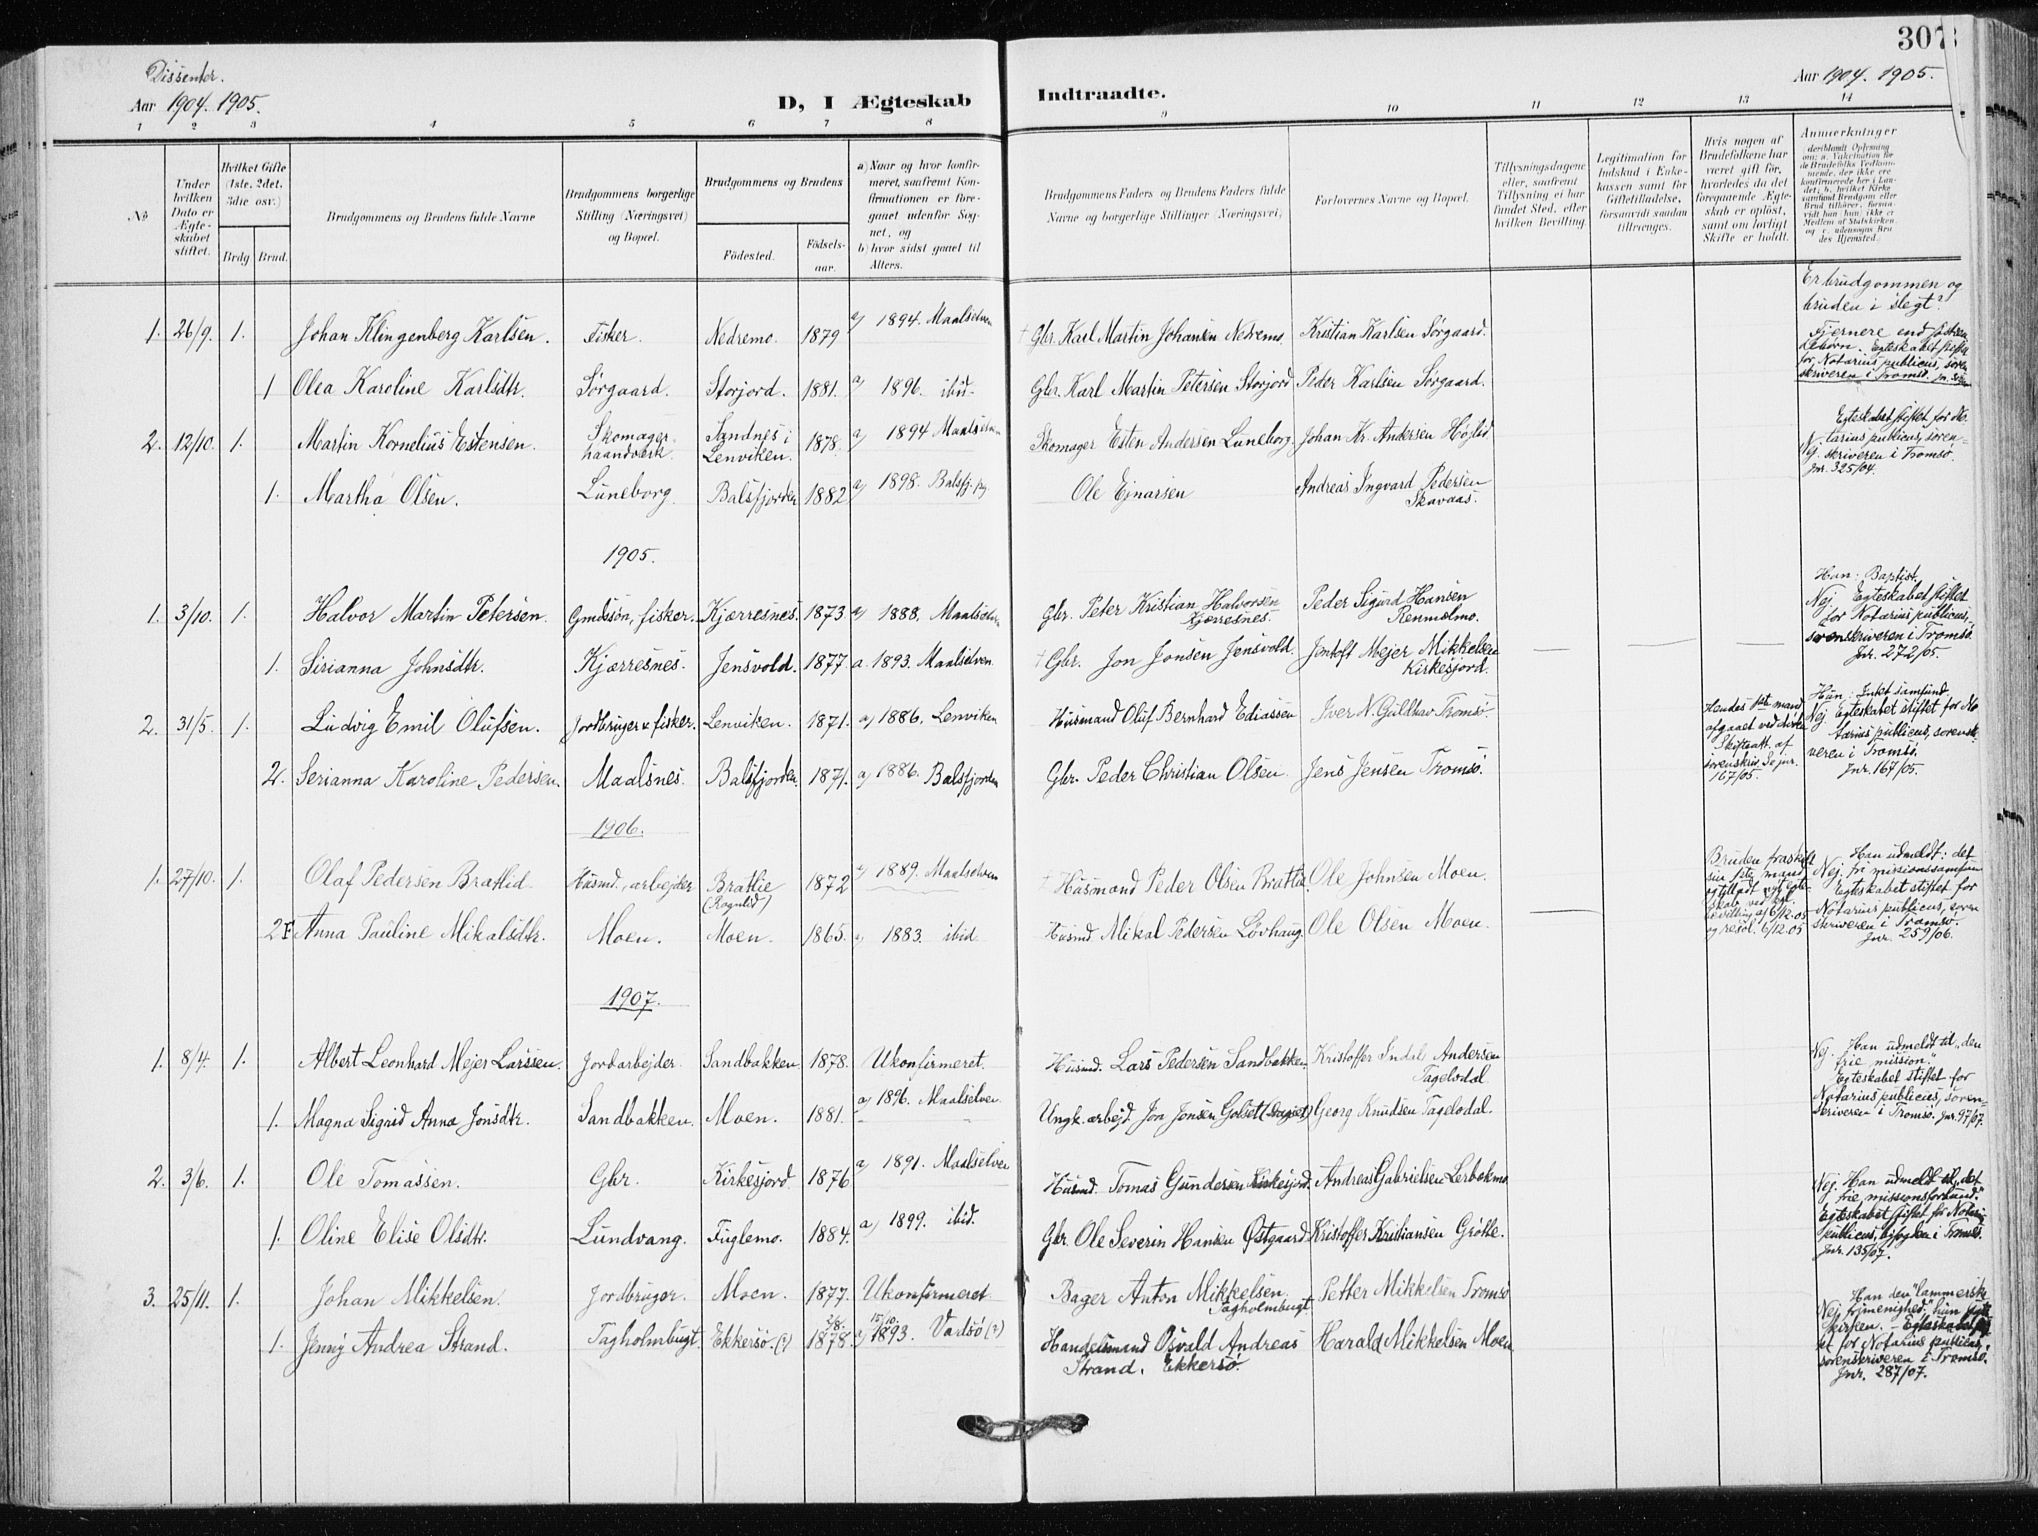 307
Dissenter.
Aar 1904. 1905.
D, I Ægteskab
Indtraadte.
Aar 1904. 1905.
1 2 3 4 5 6 7 8 9 10 11 12 13 14
No
Under hvilken Dato er Ægteskabet stiftet.
Hvilket Gifte (1ste, 2det, 3die osv.)
Brdg. Brud.
Brudgommens og Brudens fulde Navne
Brudgommens borgerlige Stilling (Næringsvei) og Bopæl.
Brudgommens og Brudens
Födested.
Födselsaar.
a) Naar og hvor konfirmeret, saafremt Konfirmationen er foregaaet udenfor Sognet, og
b) hvor sidst gaaet til Alters.
Brudgommens Faders og Brudens Faders fulde Navne og borgerlige Stillinger (Næringsvei).
Forlovernes Navne og Bopæl.
Tillysningsdagene eller, saafremt Tillysning ei har fundet Sted, efter hvilken Bevilling.
Legitimation for Indskud i Enkekassen samt for Giftetilladelse, forsaavidt saadan tiltrænges.
Hvis nogen af Brudefolkene har været gift för, hvorledes da det foregaaende Ægteskab er oplöst, samt om lovligt Skifte er holdt.
Anmerkninger
1. 26/9. 1. Johan Klingenberg Karlsen. Fisker. Nedremo. 1879 a) 1894. Maalselven † Gbr. Karl Martin Johansen Nedremo. Kristian Karlsen Sørgaard.
Er brudgommen og
bruden i slegt?
Fjernere end søskendebørn. Egteskabet stiftet
for Notarius publicus, sorenskriveren i Tromsø.
1 Olea Karoline Karlsdtr. Sørgaard. Storjord. 1881. a) 1896. ibid. Gbr. Karl Martin Petersen Storjord Peder Karlsen Sørgaard.
2. 12/10. 1. Martin Kornelius Estensen. Skomagerhaandverk. Sandnes i Lenviken. 1878. a) 1894 Maalselven Skomager Esten Andersen Luneborg. Johan Kr. Andersen Højlid
Egteskabet stiftet for Notarius publicus, soren-
Nej. skriveren i Tromsø.
Jnr. 325/04.
1. Martha Olsen. Luneborg. Balsfjorden 1882 a) 1898. Balsfj. Ole Ejnarsen Andreas Ingvard Pedersen Skavaas.
1905.
1. 3/10. 1. Halvor Martin Petersen. Gmdssøn, fisker. Kjerresnes. 1873. a) 1888. Maalselven Gbr. Peter Kristian Halvorsen Kjærresnes. Peder Sigurd Hansen Renmælmo.
Han: Baptist.
Nej. Egteskabet stiftet
for Notarius publicus,
sorenskriveren i Tromsø.
Jnr. 272/05.
1. Sirianna Johnsdtr. Kjærresnes. Jensvold. 1877. a. 1893. Maalselven. † Gbr. Jon Jonsen Jensvold. Jentoft Mejer Mikkelsen Kirkesjord.
2. 31/5. 1. Ludvig Emil Olufsen. Jordbruger & fisker. Lenviken. 1871. a) 1886. Lenviken Husmand Oluf Bernhard Ediassen Iver N. Guldhav Tromsø.
Hendes 1ste mand
afgaaet ved døden
Skifteatt. af
sorenskriv. Se jnr.
167/05.
Hun: Intet samfund.
Nej Egteskabet stiftet for Notarius publicus, sorenskriveren i Tromsø.
Jnr. 167/05.
2. Serianna Karoline Pedersen. Maalsnes. Balsfjorden. 1871. a) 1886. Balsfjorden Gbr. Peder Christian Olsen. Jens Jensen Tromsø.
1906.
1. 27/10. 1. Olaf Pedersen Bratlid. Husmd., arbejder Bratlie (Rognlid) 1872 a) 1889. Maalselven † Husmand Peder Olsen Bratlid Ole Johnsen Moen.
Bruden fraskilt
sin første mand
og tilladt nyt egteskab ved kgl.
bevilling af 6/12.05
og resol. 6/12.05
Han udmeldt: det
Nej. fri missionssamfun
Egteskabet stiftet for
Notarius publicus, sorenskriveren i Tromsø.
Jnr. 259/06.
2F Anna Pauline Mikalsdtr. Moen. Moen. 1865. a) 1883. ibid Husmd. Mikal Pedersen Løvhaug. Ole Olsen Moen.
1907.
1. 8/4. 1. Albert Leonhard Mejer Larssen. Jordarbejder. Sandbakken. 1878. Ukonfirmeret. Husmd. Lars Pedersen Sandbakken. Kristoffer Indal Andersen Tagelvdal.
Nej. Han udmeldt til "den
frie mission."
Egteskabet stiftet for
Notarius publicus, sorenskriveren i Tromsø. Jnr. 97/07.
1. Magna Sigrid Anna Jonsdtr. Sandbakken. Moen. 1881. a) 1896. Maalselven Ungk. arbejd. Jon Jonsen Georg Knudsen Tagelvdal.
2. 3/6. 1. Ole Tomassen. Gbr. Kirkesjord 1876 a) 1891. Maalselven Husmd. Tomas Gundersen Kirkesjord. Andreas Gabrielsen Lerbekmo.
Nej. Han udmeldt til "det
frie missionsforbund."
Egteskabet stiftet for Notarius
publicus, byfogden i Tromsø.
Jnr. 135/07.
1. Oline Elise Olsdtr. Lundvang. Fuglemo. 1884. a) 1899. ibid. Gbr. Ole Severin Hansen Østgaard Kristoffer Kristiansen Grøtte.
3. 25/11. 1. Johan Mikkelsen. Jordbruger. Moen. 1877. Ukonfirmeret Bager Anton Mikkelsen. Tagholmbugt. Petter Mikkelsen Tromsø
Han den "lammerske
Nej frimenighed," hun
kirken. – Egteskabet
for Notarius publicus,
sorenskriveren i Tromsø.
Jnr. 287/07.
1. Jenny Andrea Strand. Tagholmbugt. Ekkersø. (?) 1878. a) 15/10. 1893. Vadsø (?) Handelsmand Osvald Andreas Strand. Ekkersø. Harald Mikkelsen Moen